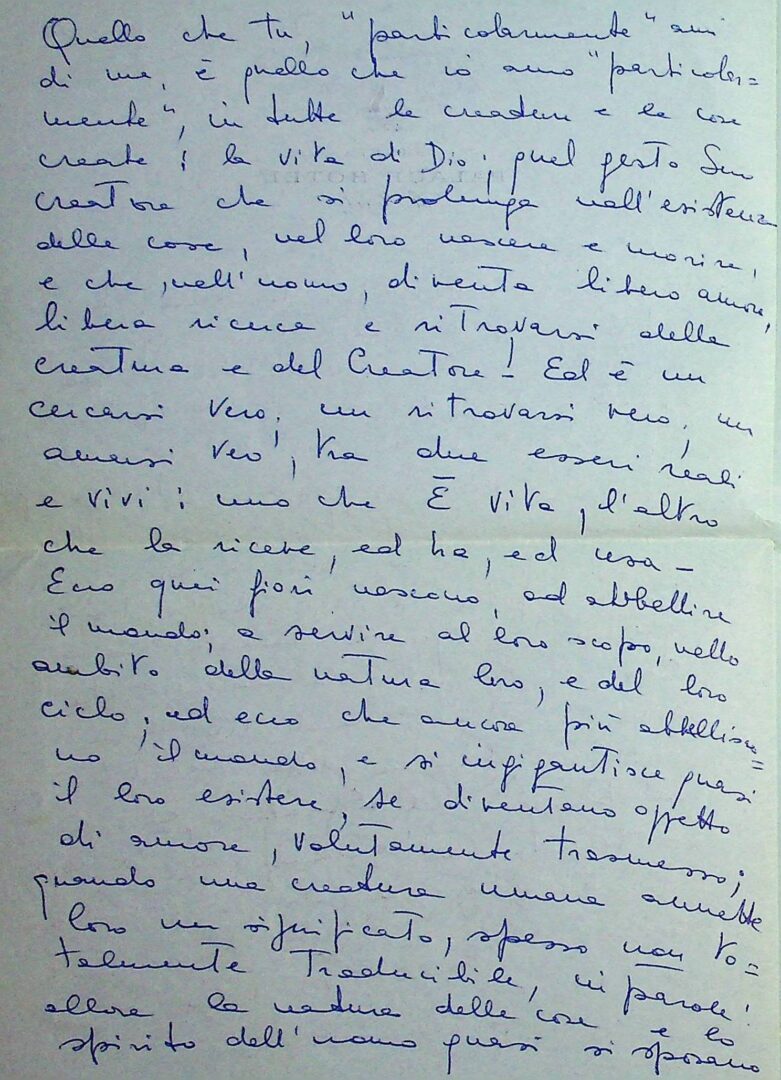 Quello che tu, "particolarmente" ami
di me, è quello che io amo "particolar=
mente", in tutte le creature e le cose
create: la vita di Dio: quel gesto Suo
creatore che si prolunga nell'esistenza
delle cose, nel loro nascere e morire,
e che, nell'uomo, diventa libero amore,
libera ricerca e ritrovarsi della
creatura e del Creatore! Ed è un
cercarsi vero, un ritrovarsi vero, un
amarsi vero, tra due esseri reali
e vivi: uno che È vita, l'altro
che la riceve, ed ha, ed usa -
Ecco quei fiori nascono, ad abbellire
il mondo; a servire al loro scopo, nello
ambito della natura loro, e del loro
ciclo; ed ecco che ancora più abbellisco=
no il mondo, e si ingigantisce quasi
il loro esistere, se diventano oggetto
di amore, volutamente trasmesso;
quando una creatura umana annette
loro un significato, spesso non to=
talmente traducibile, in parole!
allora la natura delle cose e lo
spirito dell'uomo quasi si sposano